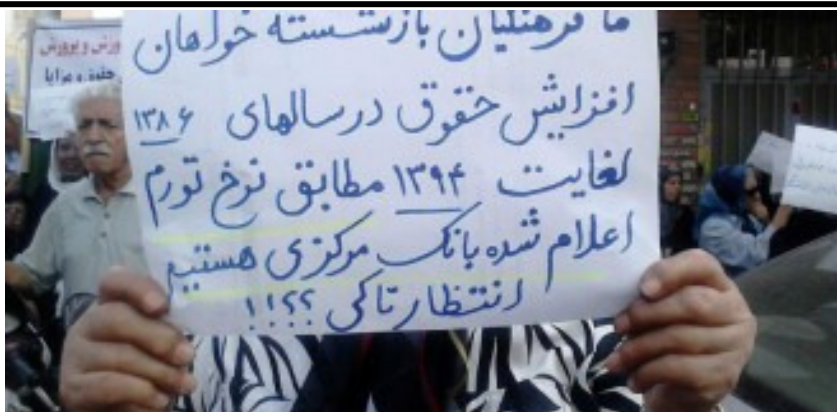 ما فرهنگیان بازنشسته خواهان
افزایش حقوق درسالهای ۱۳۸۶
لغایت ۱۳۹۴ مطابق نرخ تورم
اعلام شده بانک مرکزی هستیم
انتظار تاکی ؟؟!!!
وپرورش
حقوق ومزایا